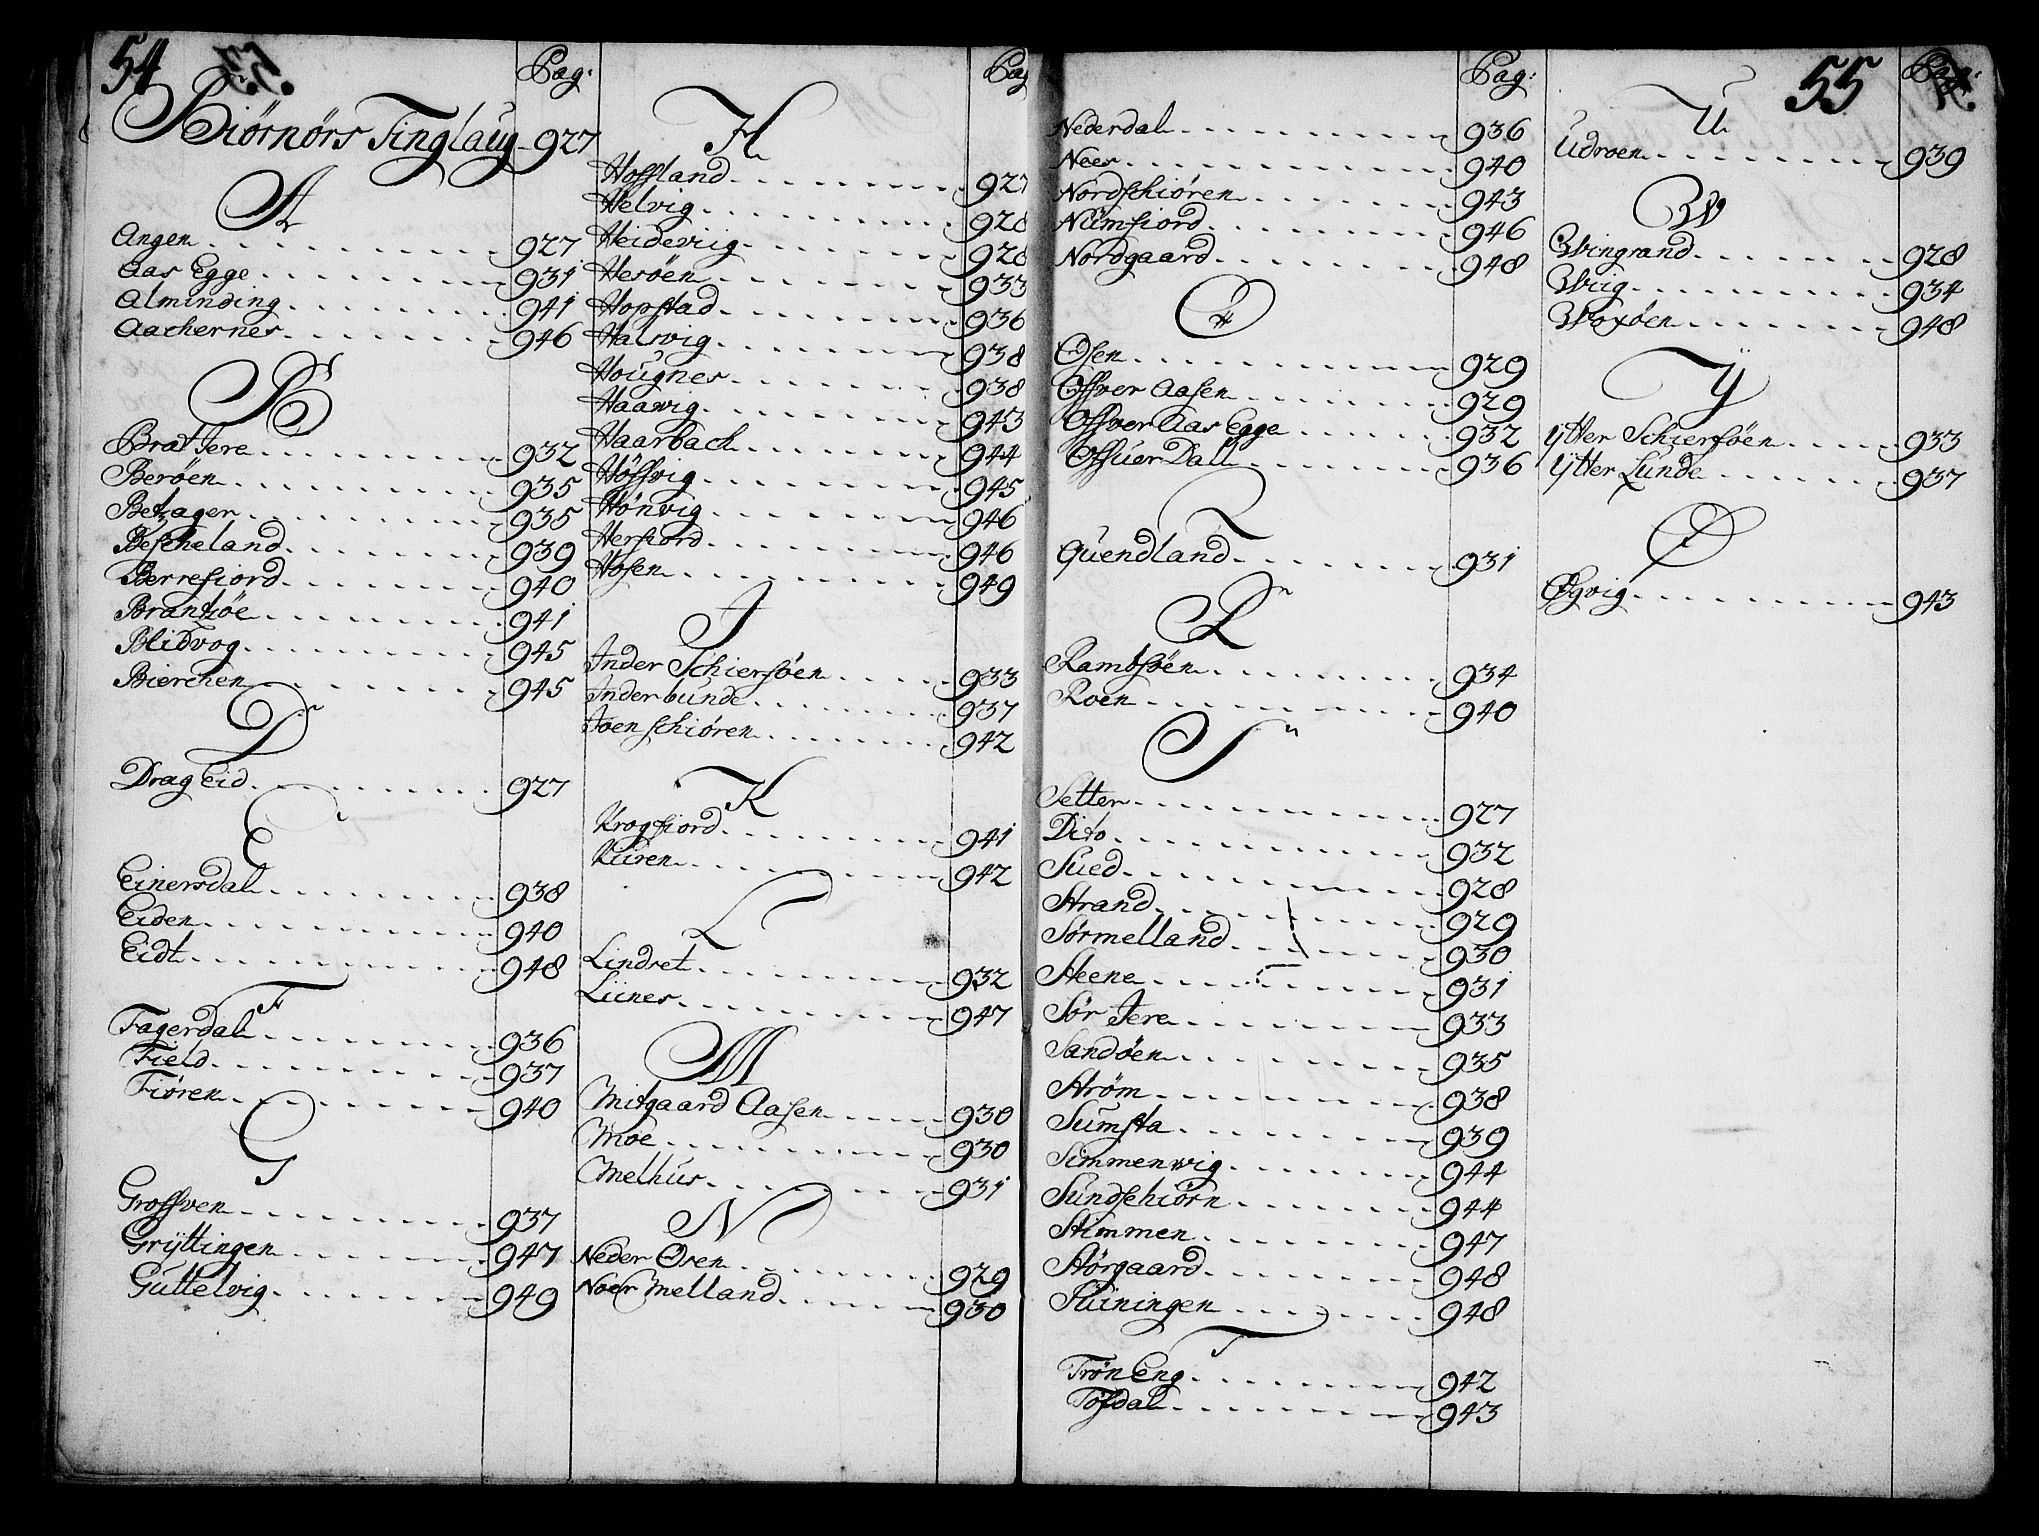 54
Pag:
Biørnørs Tinglaug 927
A
Angen 927
Aas Egge 931
Alminding 941
Aachernes 946
B
Brat Jere 932
Berøen 935
Betzager 935
Bescheland 939
Berrefiord 940
Brantzøe 941
Blidvog 945
Bierchen 945
D
Drag Eid 927
E
Einersdal 938
Eiden 940
Eidt 948
F
Fagerdal 936
Field 937
Fiøren 940
G
Grossven 937
Grÿttingen 947
Guttelvig 949
Pag
H
Hoffland 927
Helvig 928
Heideviig 928
Herøen 933
Hopstad 936
Halsvig 938
Hougnes 938
Haawig 943
Haarbach 944
Høffvig 945
Hønvig 946
Hersiord 946
Hosen 949
I
Inder Schiersøen 933
Inder Lunde 937
Joenschiøren 942
K
Krogfiord 941
Kiiren 942
L
Lindset 932
Liines 947
M
Mitgaard Aasen 930
Moe 930
Melhus 931
N
Neder Osen 929
Noer Melland 930
Pag:
Nederdal 936
Nees 940
Nordschiøren 943
Nümfiord 946
Nordgaard 948
O
Osen 929
Offver Aasen 929
Offver Aas Egge 932
Offuer Dall 936
Q
Quendland 931
R
Rambsøen 934
Roen 940
S
Setter 927
Dito 932
Sued 928
Strand 929
Sørmelland 930
Steene 931
Sør Jere 933
Sandøen 935
Strøm 938
Sumsta 939
Simmenvig 944
Sundschiørn 944
Stimmen 947
Størgaard 948
Skiningen 948
T
Trøn Eng 942
Tøssdal 943
55
Pag:
U
Udroen 939
W
Wingrand 928
Wiig 934
Woxøen 948
Y
Ytter Schiersøen 933
Ytter Lunde 937
Ø
Øgvig 943